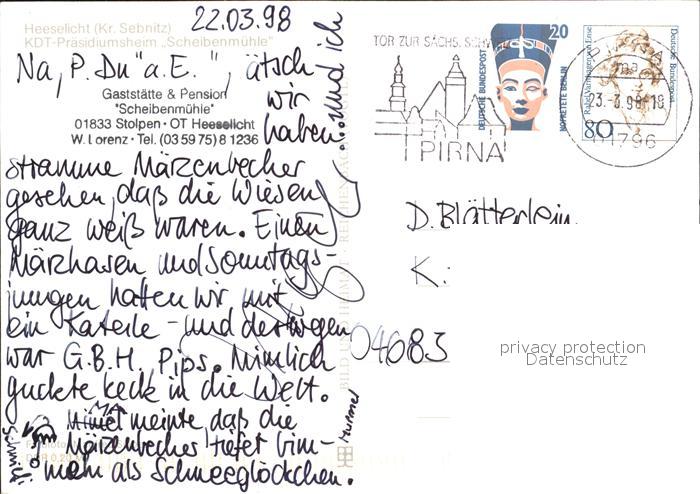 22.03.98
Heeselicht (Kr. Sebnitz)
KDT-Präsidiumsheim „Scheibenmühle"
Na, P. Du "a. E. ", ätsch
Gaststätte & Pension
"Scheibenmühle"
01833 Stolpen · OT Heeselicht
W. Lorenz · Tel. (03 59 75) 8 12 36
wir
haben
stramme Märzenbecher
gesehen, daß die Wiesen
ganz weiß waren. Einen
Märzhasen und Sonntags-
jungen hatten wir mit
ein Katerle - und deswegen
war G.B.H. Pips. Nimlich
guckte keck in die Welt.
meinte, daß die
Märzenbecher tiefer bim-
meln als Schneeglöckchen.
und ich
BILD UND HEIMAT · REICHENBACH
TOR ZUR SÄCHS. SCHW
PIRNA
DEUTSCHE BUNDESPOST
20
NOFRETETE BERLIN
Rahel Varnhagen von Ense
80
Deutsche Bundespost
23.-3.98-18
01796
D. Blätterlein
K.:
04683
privacy protection
Datenschutz